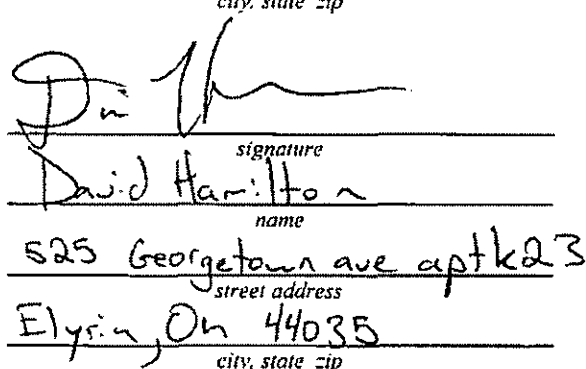 city, state zip
signature
David Hamilton
name
525 Georgetown ave apt k23
street address
Elyria, Oh 44035
city, state zip